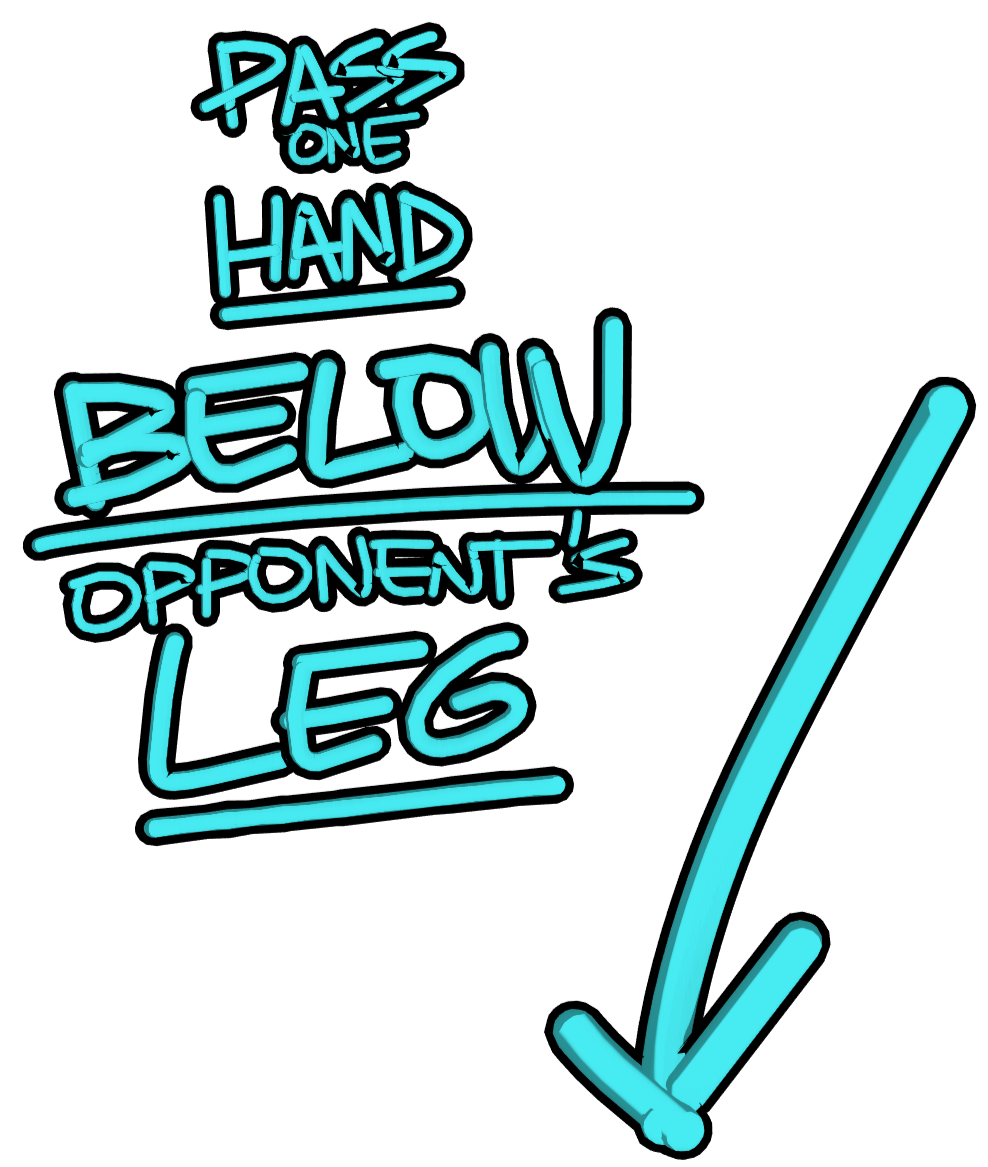 PASS
ONE
HAND
BELOW
OPPONENT'S
LEG